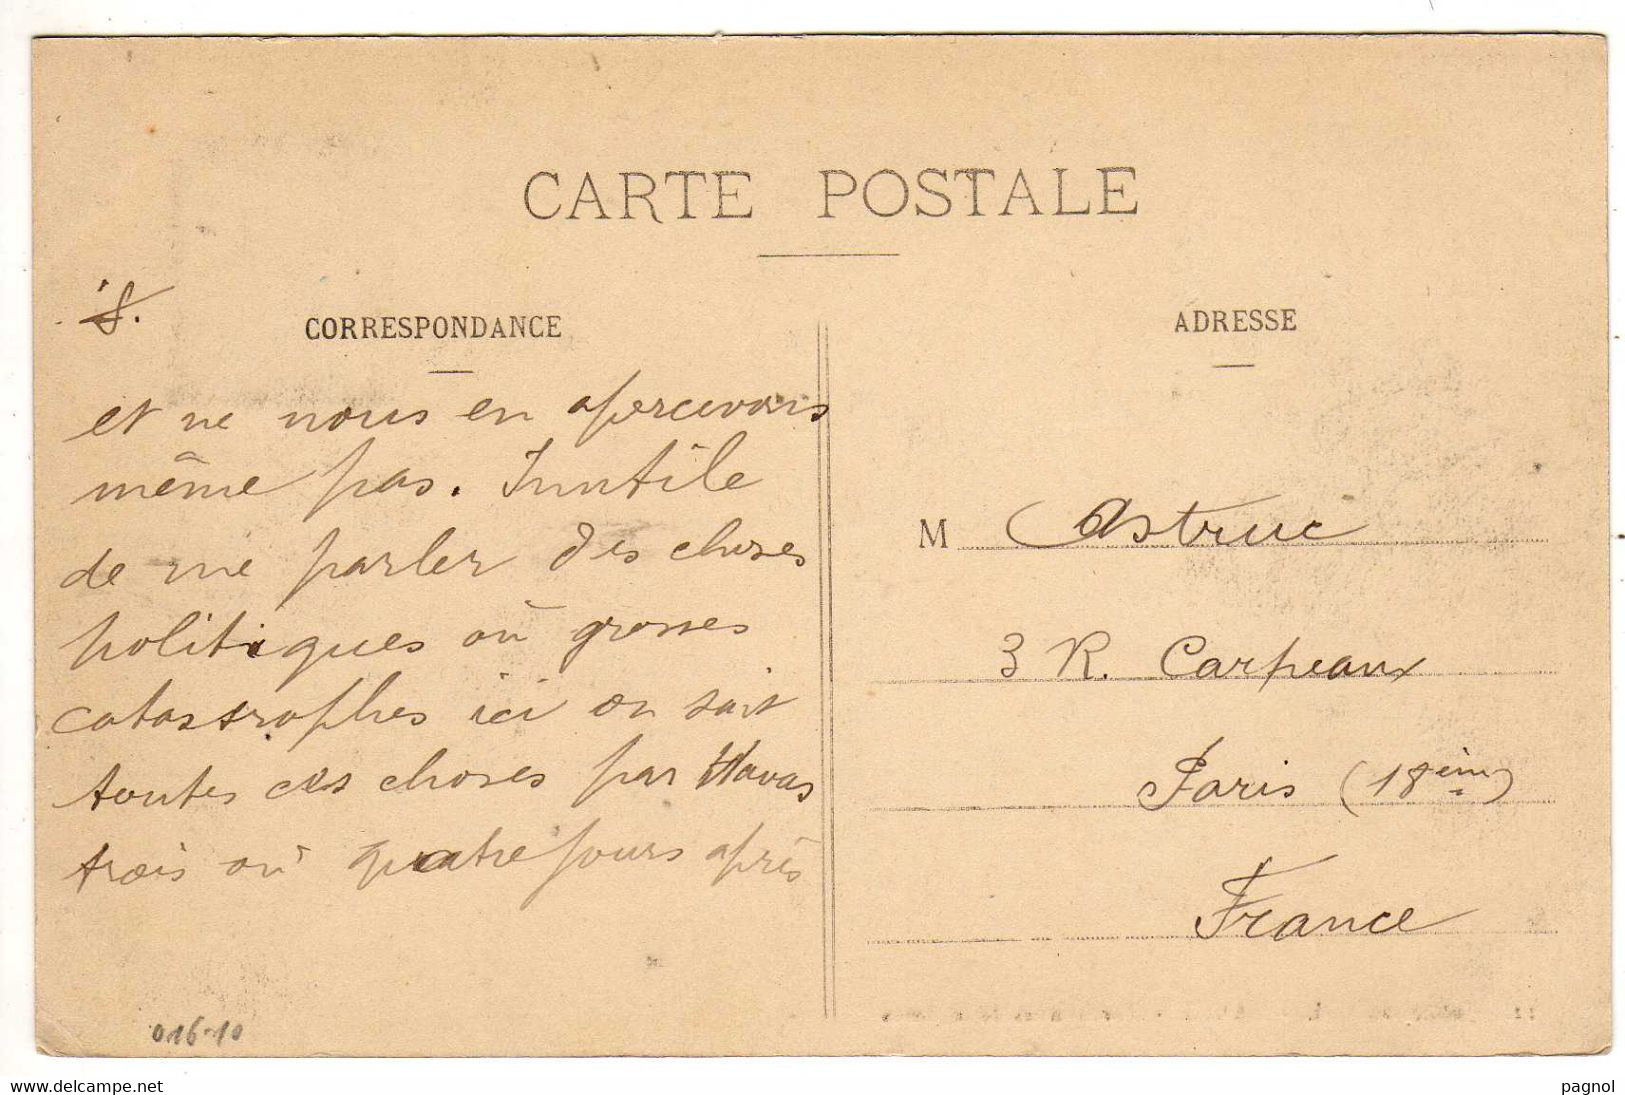 CARTE POSTALE
CORRESPONDANCE
et ne nous en apercevons
même pas. Inutile
de me parler des choses
politiques où grosses
catastrophes ici on sait
toutes ces choses par Havas
trois où quatre jours après
016-10
ADRESSE
M Astruc
3 R. Carpeaux
Paris (18ème)
France
www.delcampe.net
pagnol